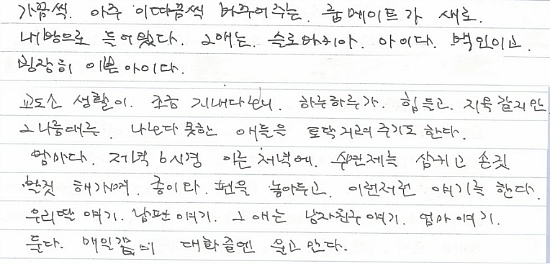 가끔씩. 아주 이따끔씩 바꾸어주는. 룸메이트가 새로.
내방으로 들어왔다. 그애는. 슬로바키아. 아이다. 백인이고
굉장히 이쁜아이다.
교도소 생활이. 조금 지내다보니. 하루하루가. 힘들고. 지옥같지만
그나름대로. 나보다못한 애들을 토닥거려주기도 한다.
밤마다. 저녁 6시경 이른저녁에. 수면제를 삼키고 손짓
발짓 해가며. 종이다. 펜을 놓아두고. 이런저런 얘기를 한다.
우리딸 얘기. 남편얘기. 그애는 남자친구얘기. 엄마얘기.
둘다. 매일같이 대화중엔 울고만다.